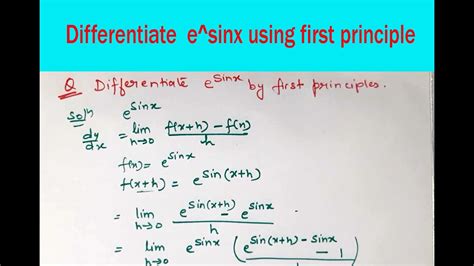 Differentiate e^sinx using first principle
Q Differentiate e^sinx by first principles.
Solⁿ e^sinx
dy/dx = lim h→0 f(x+h) - f(x) / h
f(x) = e^sinx
f(x+h) = e^sin(x+h)
= lim h→0 e^sin(x+h) - e^sinx / h
= lim h→0 e^sinx ( e^sin(x+h) - sinx - 1 )